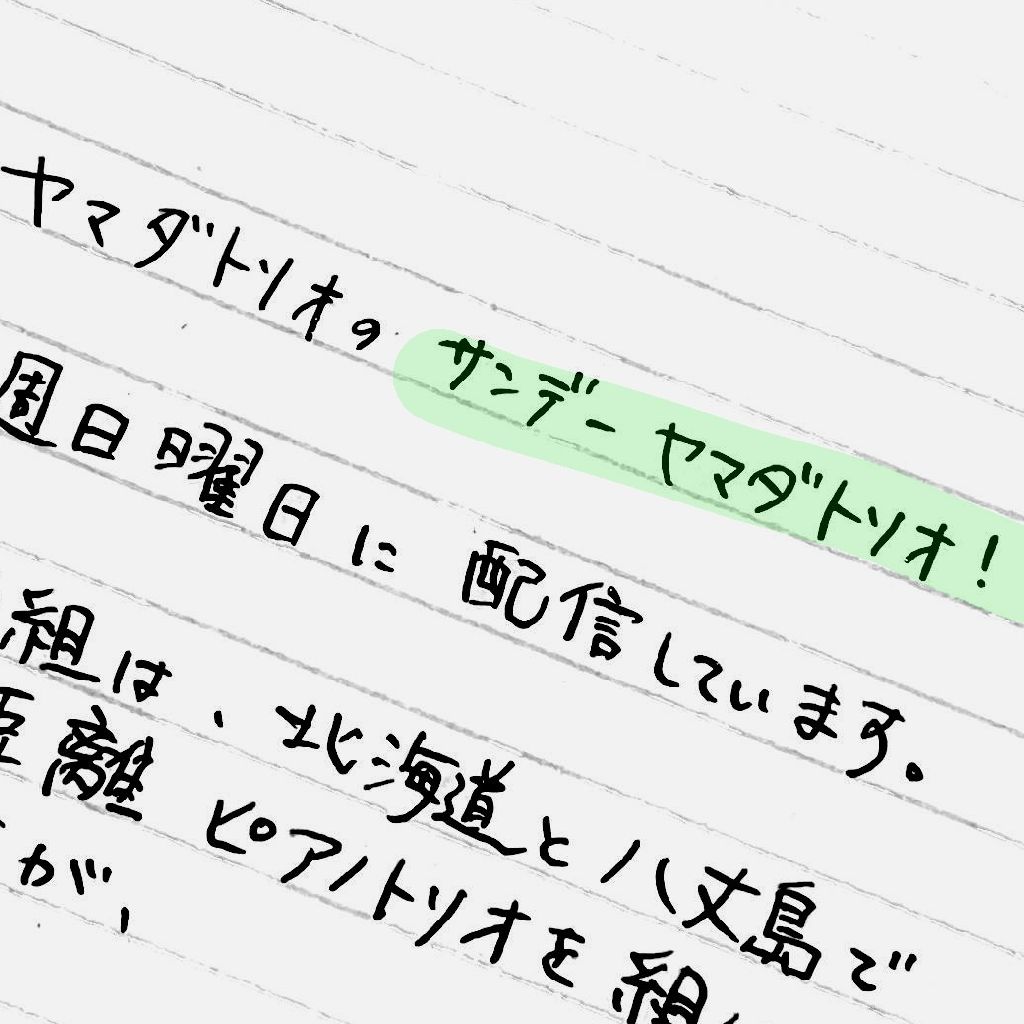 ヤマダトリオの サンデーヤマダトリオ!
週日曜日に 配信しています。
組は、北海道と八丈島で
距離 ピアノトリオを組
が、